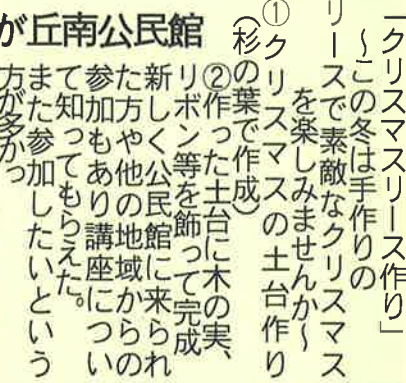 が丘南公民館
「クリスマスリース作り」
～この冬は手作りの
リースで素敵なクリスマス
を楽しみませんか～
①クリスマスの土台作り
(杉の葉で作成)
②作った土台に木の実、
リボン等を飾って完成
新しく公民館に来られ
た方や他の地域からの
参加もあり講座につい
て知ってもらえた。
また参加したいという
方が多かっ